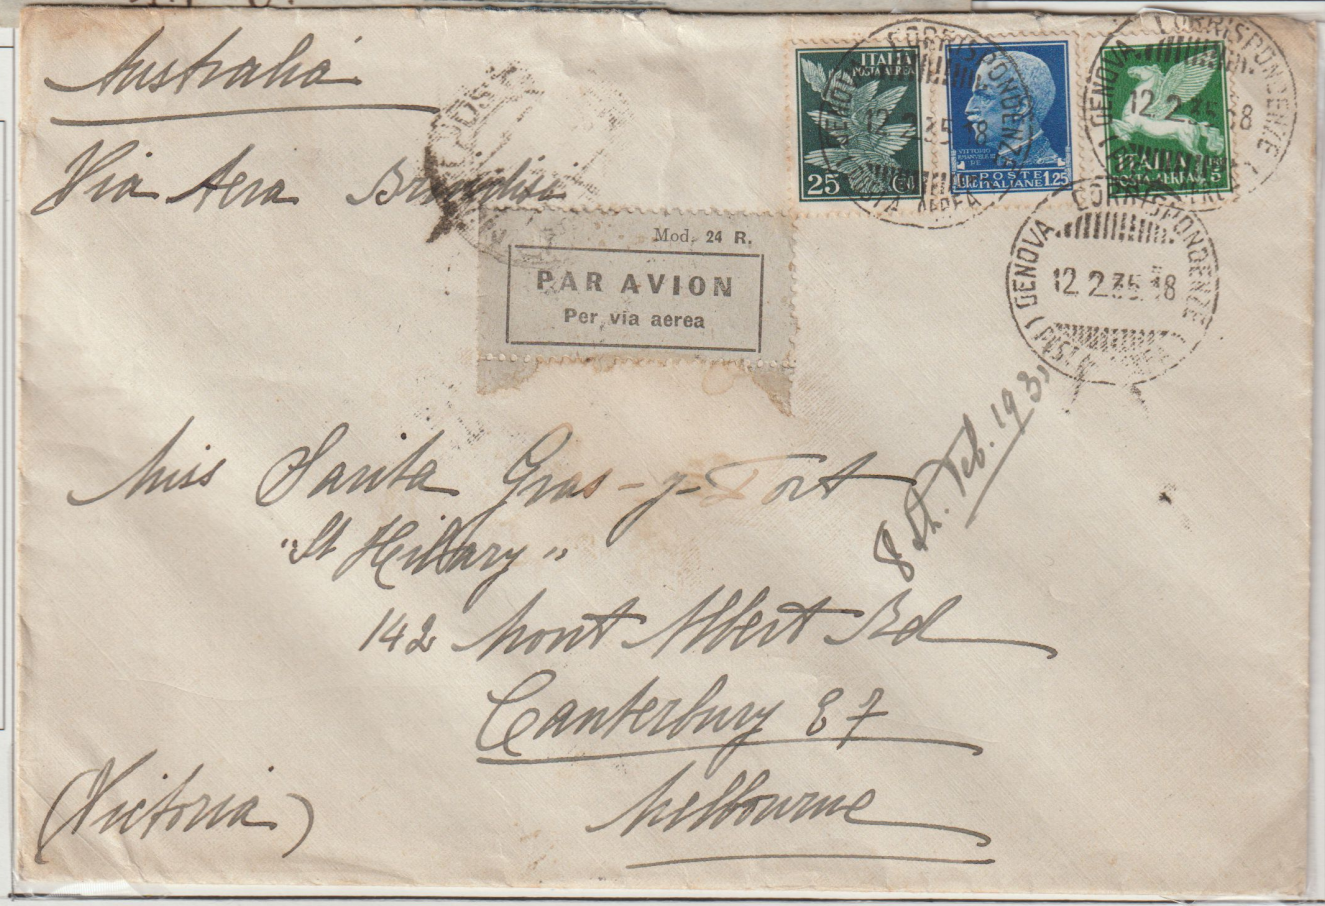 Australia
Via Aera Brindisi
ITALIA
POSTA AEREA
25
VITTORIO
EMANUELE III
RE
POSTE
ITALIANE 1.25
ITALIA
POSTA AEREA
5
GENOVA CORRISPONDENZE
12.2.35.18
POSTA AEREA
GENOVA CORRISPONDENZE
12.2.35.18
GENOVA CORRISPONDENZE
12.2.35.18
Mod. 24 R.
PAR AVION
Per via aerea
8th. Feb. 193
Miss Sarita Gras-y-Fort
"St Hillary"
142 Mont Albert Rd
Canterbury E7
Melbourne
(Victoria)